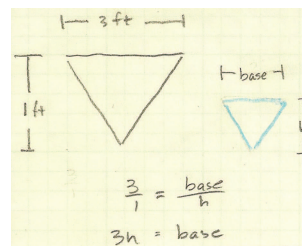 3 ft
1 ft
base
3/1 = base/h
3h = base